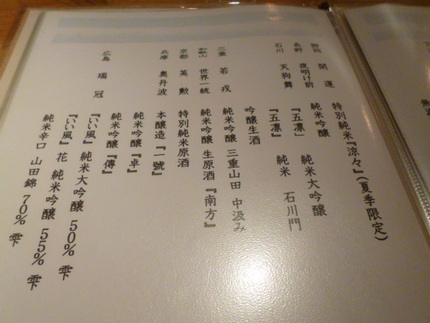 静岡 開運 特別純米『涼々』(夏季限定)
長野 夜明け前 純米吟醸
石川 天狗舞 『五凛』 純米大吟醸
『五凛』 純米 石川門
吟醸生酒
三重 若戎 純米吟醸 三重山田 中汲み
和歌山 世界一統 純米吟醸 生原酒『南方』
京都 英勲 特別純米原酒
兵庫 奥丹波 本醸造『一號』
純米吟醸『卓』
純米吟醸『傳』
広島 瑞冠 『いい風』 純米大吟醸 50% 雫
『いい風』花 純米吟醸 55% 雫
純米辛口 山田錦 70% 雫